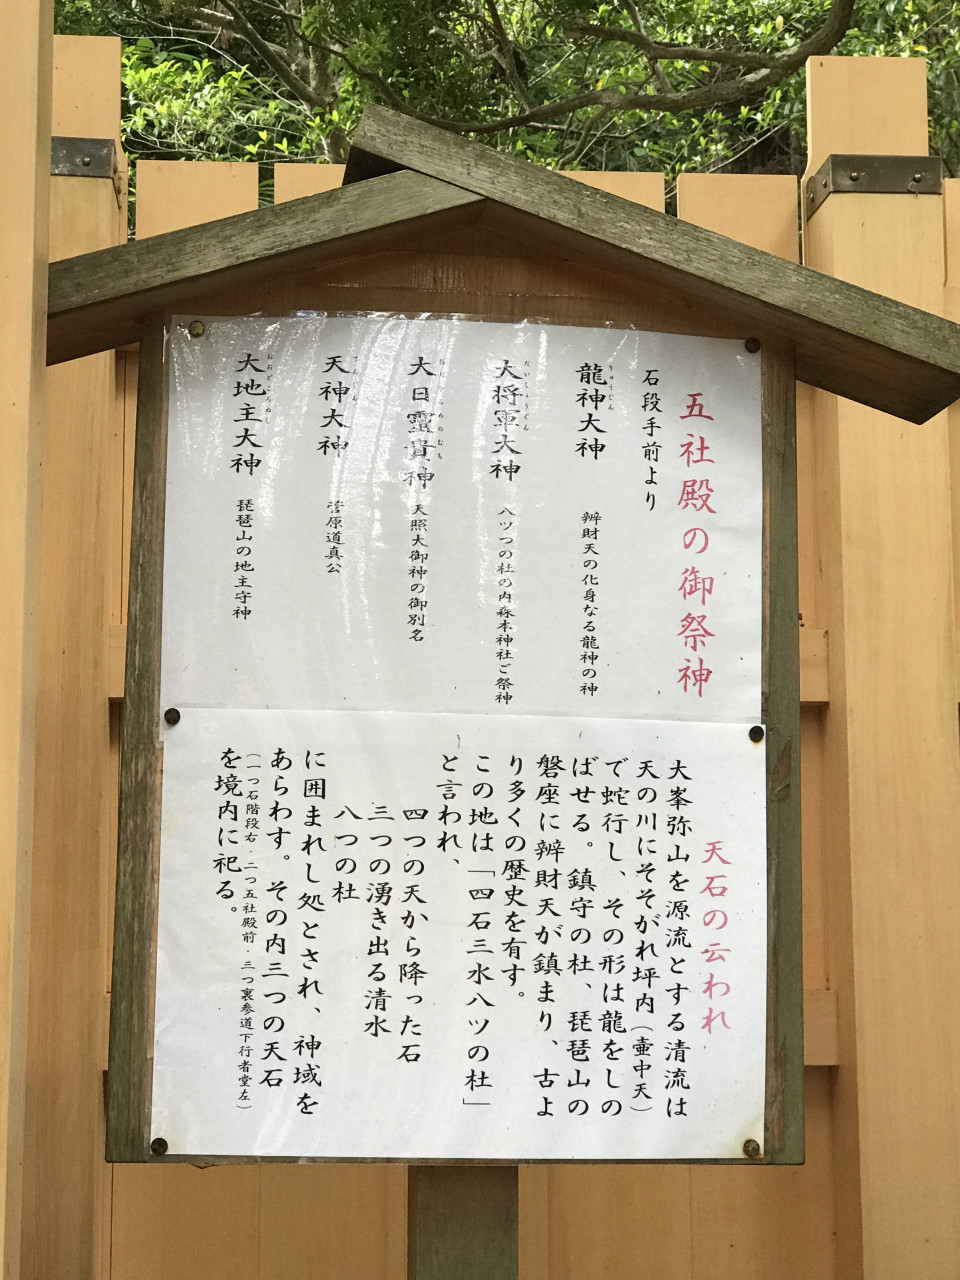 五社殿の御祭神
石段手前より
龍神大神 辨財天の化身なる龍神の神
りゅうじん
大将軍大神 八ツつの社の内森本神社ご祭神
だいしょうぐん
大日靈貴神 天照大御神の御別名
天神大神 菅原道真公
てんじん
大地主大神 琵琶山の地主守神
おおどころぬし
天石の云われ
大峯弥山を源流とする清流は
天の川にそそがれ坪内(壷中天)
で蛇行し、その形は龍をしの
ばせる。鎮守の杜、琵琶山の
磐座に辨財天が鎮まり、古よ
り多くの歴史を有す。
この地は「四石三水八ツの杜」
と言われ、
四つの天から降った石
三つの湧き出る清水
八つの杜
に囲まれし処とされ、神域を
あらわす。その内三つの天石
(一つ石階段右．二つ五社殿前．三つ裏参道下行者堂左)
を境内に祀る。